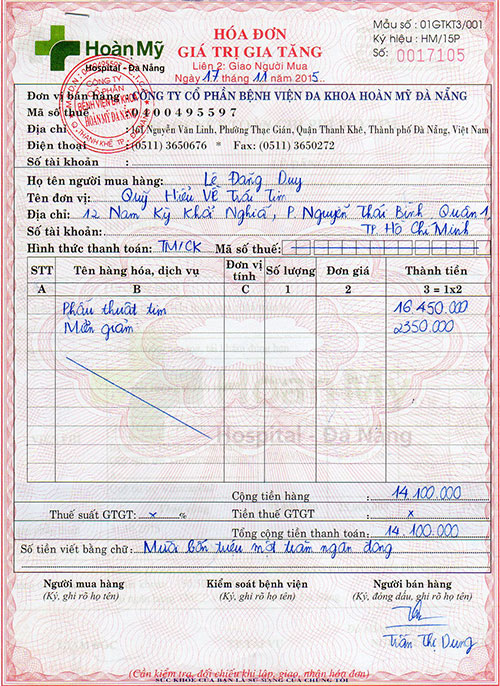 Hoàn Mỹ
Hospital - Đà Nẵng
HÓA ĐƠN
GIÁ TRỊ GIA TĂNG
Liên 2: Giao Người Mua
Ngày 17 tháng 11 năm 2015
Mẫu số : 01GTKT3/001
Ký hiệu : HM/15P
Số: 0017105
CÔNG TY
CỔ PHẦN
BỆNH VIỆN ĐA KHOA
HOÀN MỸ ĐÀ NẴNG
Q. THANH KHÊ - TP. ĐÀ NẴNG
Đơn vị bán hàng : CÔNG TY CỔ PHẦN BỆNH VIỆN ĐA KHOA HOÀN MỸ ĐÀ NẴNG
Mã số thuế : 0400495597
Địa chỉ : 161 Nguyễn Văn Linh, Phường Thạc Gián, Quận Thanh Khê, Thành phố Đà Nẵng, Việt Nam
Điện thoại : (0511) 3650676 * Fax: (0511) 3650272
Số tài khoản :
Họ tên người mua hàng: Lê Đang Duy
Tên đơn vị: Quỹ Hiểu Về Trái Tim
Địa chỉ: 12 Nam Kỳ Khởi Nghĩa, P. Nguyễn Thái Bình, Quận 1,
Số tài khoản: TP. Hồ Chí Minh
Hình thức thanh toán: TM/CK Mã số thuế:
STT Tên hàng hóa, dịch vụ Đơn vị tính Số lượng Đơn giá Thành tiền
A B C 1 2 3 = 1x2
Phẫu thuật tim 16 450.000
Miễn giảm 2350.000
Hospital - Đà Nẵng
Cộng tiền hàng : 14.100.000
Thuế suất GTGT: x % Tiền thuế GTGT : x
Tổng cộng tiền thanh toán: 14.100.000
Số tiền viết bằng chữ: Mười bốn triệu một trăm ngàn đồng
Người mua hàng Kiểm soát bệnh viện Người bán hàng
(Ký, ghi rõ họ tên) (Ký, ghi rõ họ tên) (Ký, đóng dấu, ghi rõ họ tên)
Trần Thị Dung
(Cần kiểm tra, đối chiếu khi lập, giao, nhận hóa đơn)
SỨC KHOẺ CỦA BẠN LÀ SỨ MẠNG CỦA CHÚNG TÔI